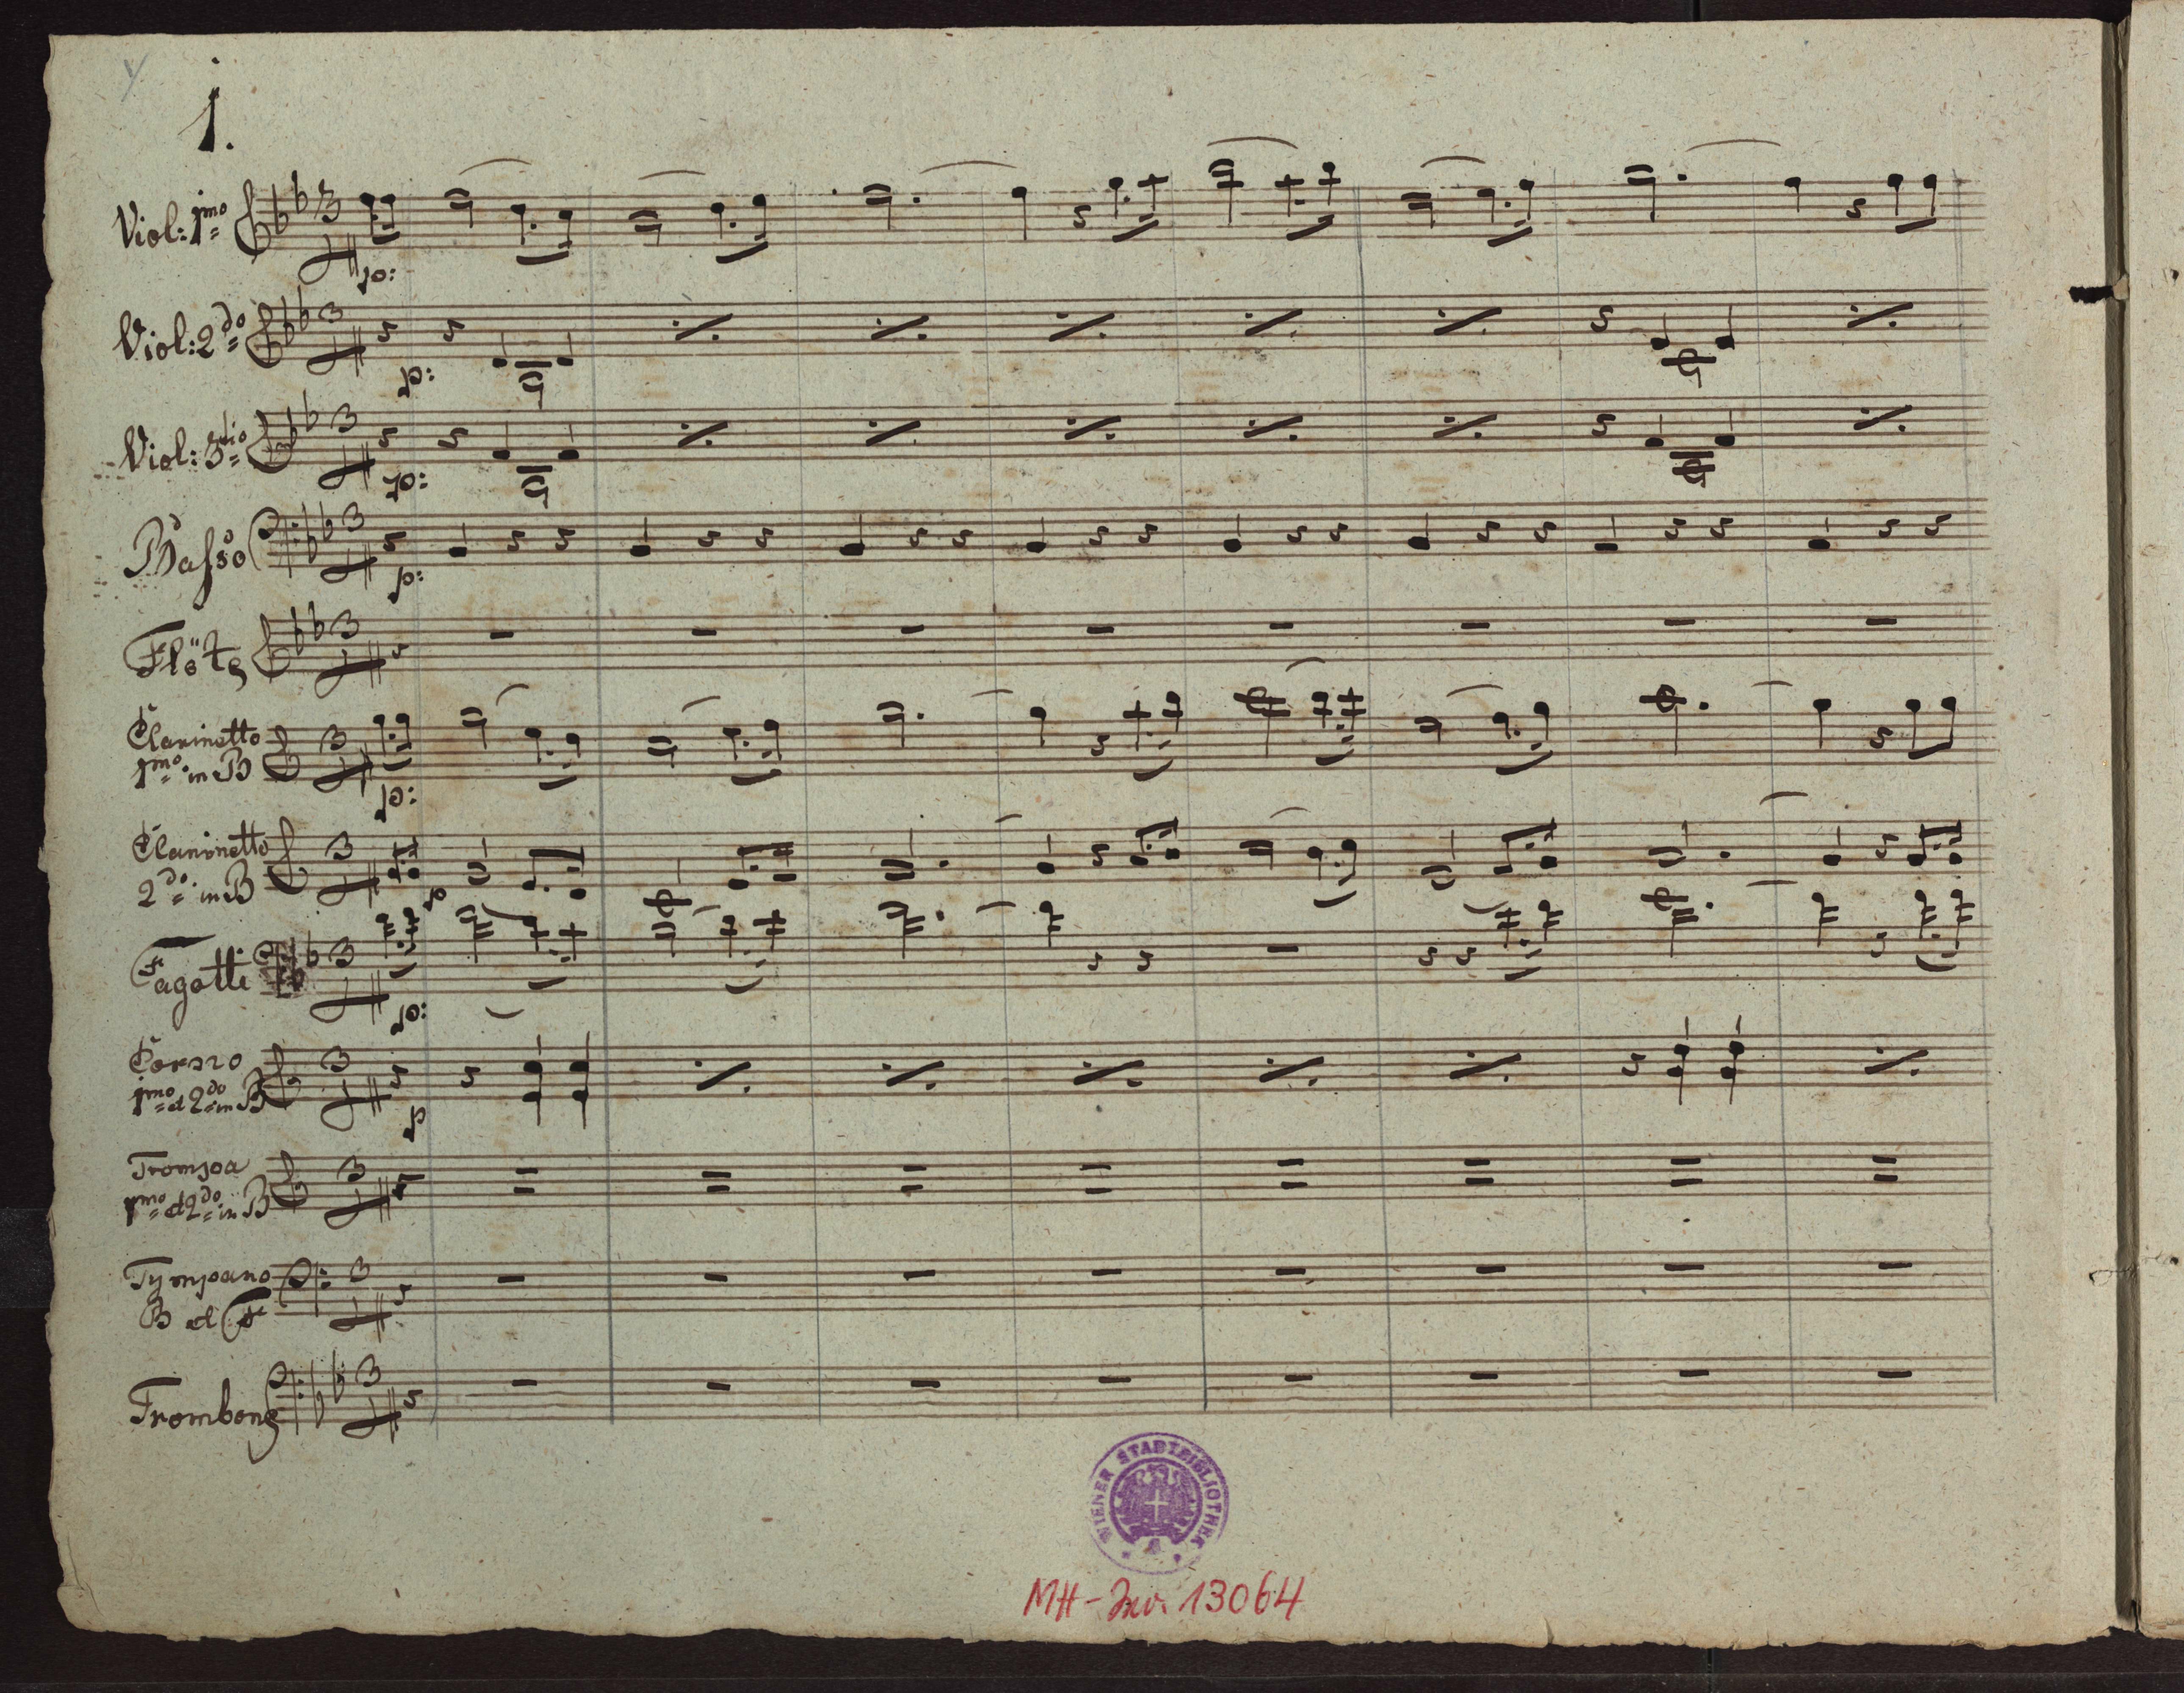 1.
Viol: 1mo
p:
Viol: 2do
p:
Viol: 3tio
p:
Basso
p:
Flöte
Clarinetto
1mo in B
p:
Clarinetto
2do in B
p
Fagotti
p:
Corno
1mo et 2do in B
p
Trompa
1mo et 2do in B
Tympano
B et F
Trombone
WIENER STADTBIBLIOTHEK
MH-Inv. 13064